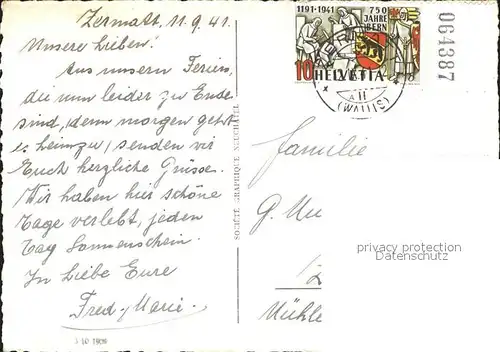 Zermatt, 11.9.41.
Unsere Lieben!
Aus unsern Ferien,
die nun leider zu Ende
sind, denn morgen geht
es heimzu, senden wir
Euch herzliche Grüsse.
Wir haben hier schöne
Tage verlebt, jeden
Tag Sonnenschein.
In Liebe Eure
Fred-Marie.
SOCIÉTÉ GRAPHIQUE NEUCHÂTEL
1191-1941
750
JAHRE
BERN
10
HELVETIA
(WALLIS)
064387
Familie
G.
Mühle
privacy protection
Datenschutz